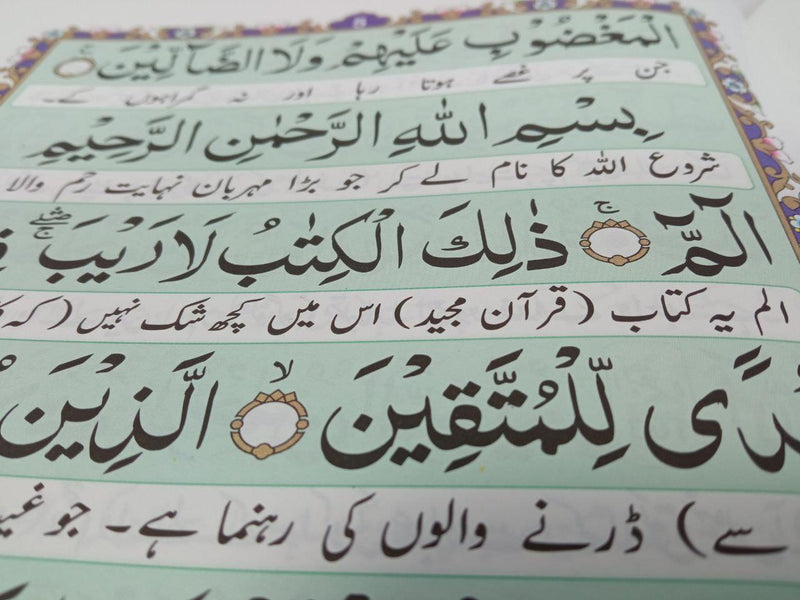 الْمَغْضُوْبِ عَلَيْهِمْ وَلَا الضَّآلِّيْنَ
جن پر غصے ہوتا رہا اور نہ گمراہوں کے۔
بِسْمِ اللهِ الرَّحْمٰنِ الرَّحِيْمِ
شروع اللہ کا نام لے کر جو بڑا مہربان نہایت رحم والا
الٓمّٓ ۚ ذٰلِكَ الْكِتٰبُ لَا رَيْبَ
الم یہ کتاب (قرآن مجید) اس میں کچھ شک نہیں (کہ
لِّلْمُتَّقِيْنَ ۙ الَّذِيْنَ
سے) ڈرنے والوں کی رہنما ہے۔ جو